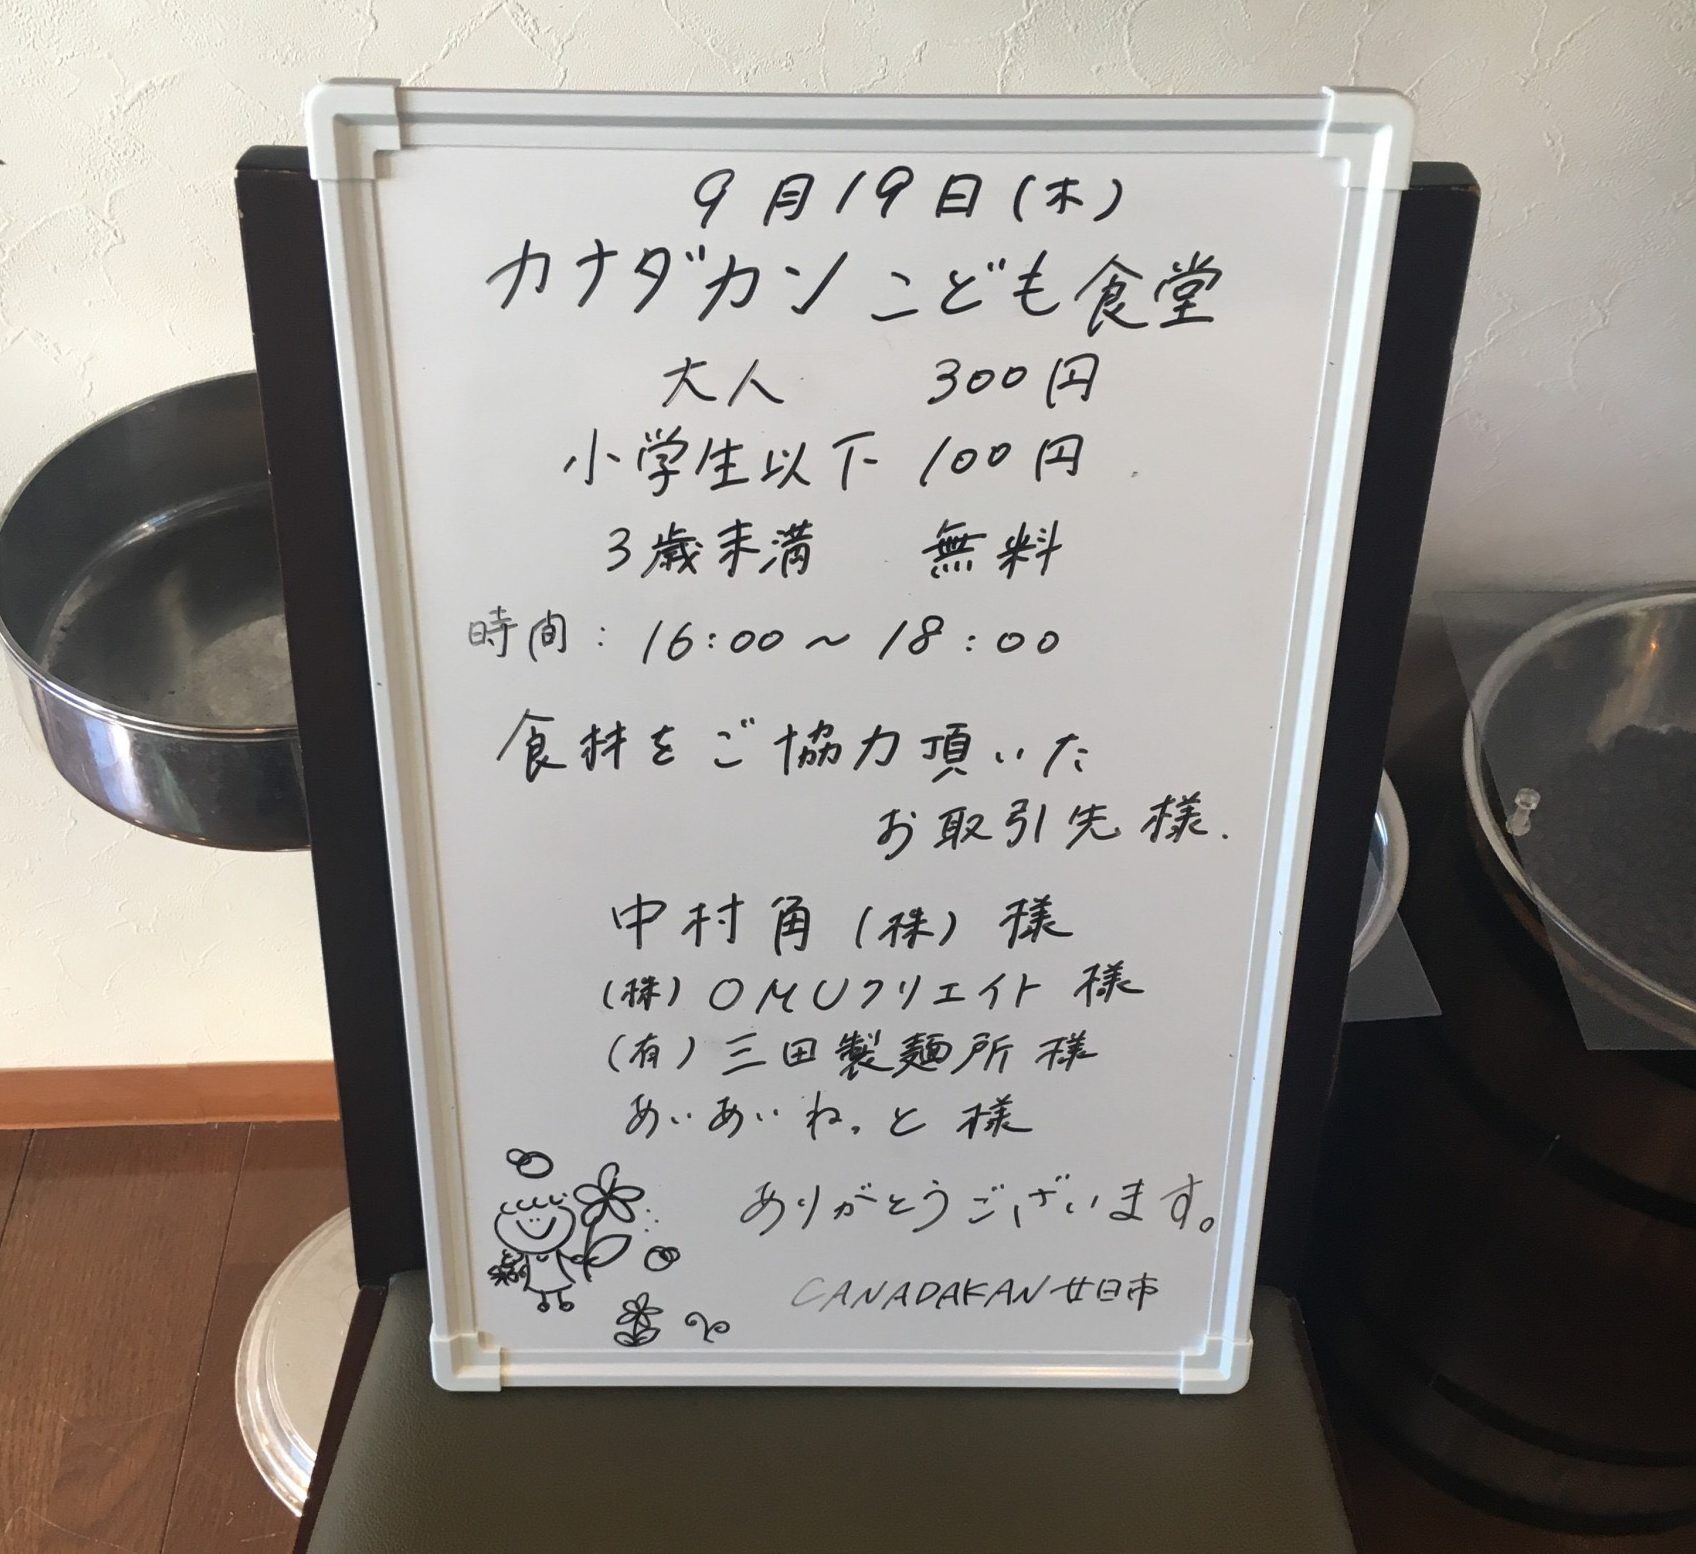 9月19日(木)
カナダカンこども食堂
大人 300円
小学生以下 100円
3歳未満 無料
時間:16:00〜18:00
食材をご協力頂いた
お取引先様.
中村角(株)様
(株)OMUクリエイト様
(有)三田製麺所様
あいあいねっと様
ありがとうございます。
CANADAKAN廿日市